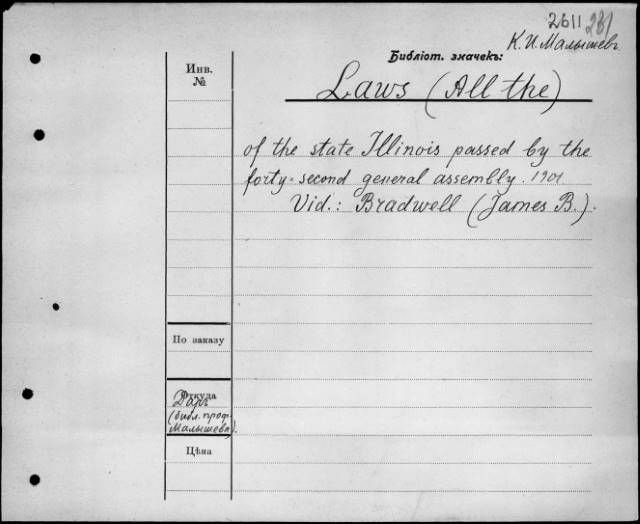 2611
К. И. Малышевъ
Библіот. значекъ:
Инв.
№
Laws (All the)
of the state Illinois passed by the
forty-second general assembly. 1901
Vid.: Bradwell (James B.).
По заказу
Откуда
Даръ
(библ. проф.
Малышева).
Цѣна